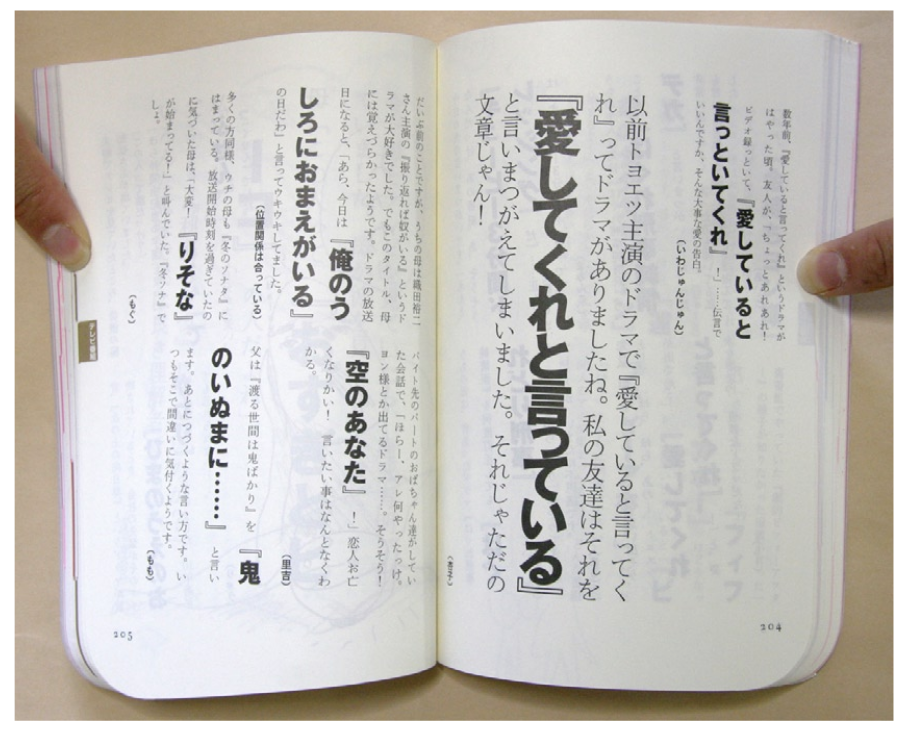 数年前、『愛していると言ってくれ』というドラマが
はやった頃、友人が、「ちょっとあれあれ！
ビデオ録っといて、『愛していると
言っといてくれ』！」……伝言で
いいんですか、そんな大事な愛の告白。
（いわじゅんじゅん）
以前トヨエツ主演のドラマで『愛していると言ってく
れ』ってドラマがありましたね。私の友達はそれを
『愛してくれと言っている』
と言いまつがえてしまいました。それじゃただの
文章じゃん！
204
だいぶ前のことですが、うちの母は織田裕二
さん主演の『振り返れば奴がいる』というド
ラマが大好きでした。でもこのタイトル、母
には覚えづらかったようです。ドラマの放送
日になると、「あら、今日は『俺のう
しろにおまえがいる』
の日だわ」と言ってウキウキしてました。
（位置関係は合っている）
多くの方同様、ウチの母も『冬のソナタ』に
はまっている。放送開始時刻を過ぎていたの
に気づいた母は、「大変！『りそな』
が始まってる！」と叫んでいた。『冬ソナ』で
しょ。
（もぐ）
バイト先のパートのおばちゃん達がしてい
た会話で、「ほらー、アレ何やったっけ。
ヨン様とか出てるドラマ……。そうそう！
『空のあなた』！」恋人お亡
くなりかい！　言いたい事はなんとなくわ
かる。
（里吉）
父は『渡る世間は鬼ばかり』を『鬼
のいぬまに……』と言い
ます。あとにつづくような言い方です。い
つもそこで間違いに気付くようです。
（もも）
テレビ番組
205